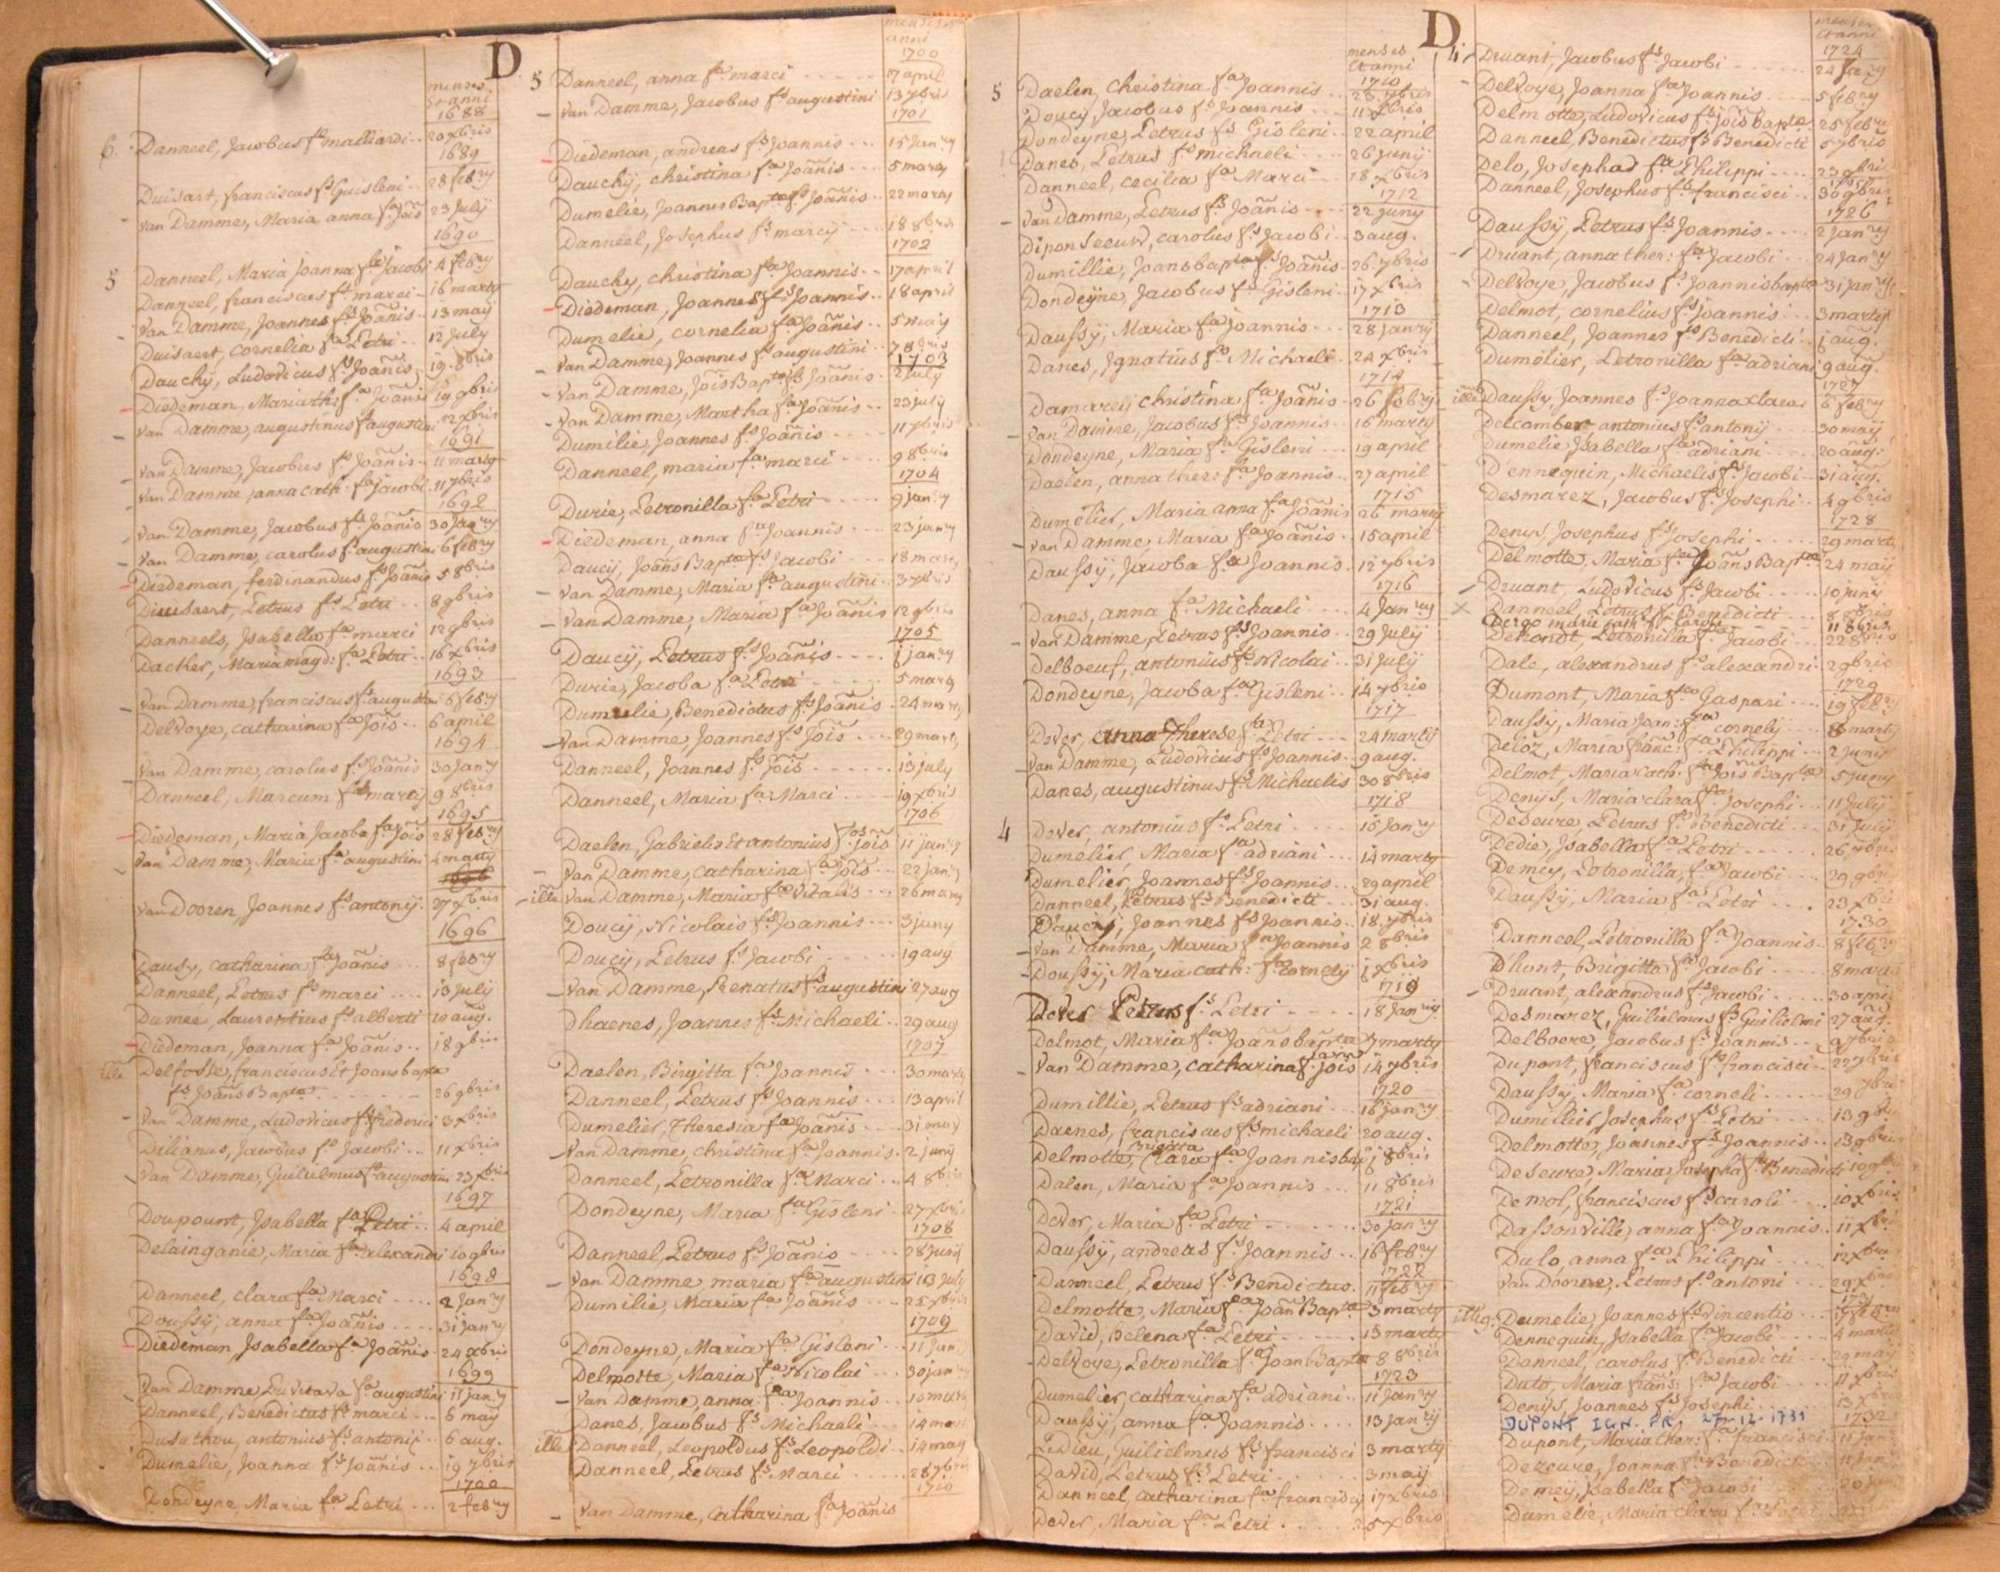 D.
menses
et anni
1688
6. Danneel, Jacobus fs malliardi .. 20 xbris
1689
Duisart, franciscus fs Guisleni .. 28 febry
van Damme, Maria anna fa Jois 23 July
1690
5 Danneel, Maria Joanna fa Jacobi 4 febry
Danneel, franciscus fs marci .. 16 marty
van Damme, Joannes fs Joānis .. 13 maÿ
Duisaert, Cornelia fa Petri .. 12 July
Dauchÿ, Ludovicus fs Joānis 19. 8bris
Diedeman, Maria the: fa Joānis 19 9bris
van Damme, augustinus fs augustini 12 xbris
1691
van Damme, Jacobus fs Joānis .. 11 marty
van Damme, anna cath. fa Jacobi. 11 7bris
1692
van Damme, Jacobus fs Joānis 30 Janry
van Damme, carolus fs augustini 6 febry
Diedeman, ferdinandus fs Joānis 5 8bris
Diusaert, Petrus fs Petri .. 8 9bris
Danneels, Isabella fa marci 12 9bris
Dacker, Maria magd: fa Petri .. 16 xbris
1693
van Damme, franciscus fs augustini 6 febry
Delvoye, catharina fa Jois .. 6 april
1694
van Damme, carolus fs Joānis 30 Janry
Danneel, Marcum fs marcij 9 8bris
1695
Diedeman, Maria Jacoba fa Jois 28 febry
van Damme, Maria fa augustini 2 marty
1696
van Dooren, Joannes fs antonÿ. 27 xbris
1696
Dausy, catharina fa Joānis ... 8 febry
Danneel, Petrus fs marci .... 13 July
Dumee Laurentius fs alberti 20 aug.
Diedeman, Joanna fa Joānis .. 18 9bris
ille Delfosse, franciscus et Joans bapta
fs Joāns Bapta ..... 26 9bris
van Damme, Ludovicus fs frederici 3 xbris
Dilianus, Jacobus fs Jacobi ... 11 xbris
van Damme, Guilielmus fs augustini 23 xbris
1697
Doupount, Isabella fa Petri .. 4 april
Delainganie, Maria fa alexandri 10 9bris
1698
Danneel, clara fa Marci .... 2 Janry
Doussÿ, anna fa Joānis .... 31 Janry
Diedeman, Isabella fa Joānis 24 xbris
1699
van Damme, Luvitava fa augustini 11 Janry
Danneel, Benedictus fs marci .. 6 maÿ
Dusathou, antonius fs antonii .. 6 aug.
Dumelie, Joanna fa Joānis ... 19 7bris
1700
Dondeÿne Maria fa Petri ... 2 febry
menses
anni
1700
5 Danneel, anna fa marci ..... 17 april
van Damme, Jacobus fs augustini 13 7bris
1701
Diedeman, andreas fs Joannis ... 15 Janry
Dauchÿ, christina fa Joānis ... 5 marty
Dumelie, Joannes Bapta fs Joānis .. 22 marty
Danneel, Josephus fs marcÿ ... 18 8bris
1702
Dauchy, christina fa Joannis .. 17 april
Diedeman, Joannes fs Joannis .. 18 april
Dumelie, cornelia fa Joānis .. 5 maÿ
van Damme, Joannes fs augustini .. 7 8bris
1703
van Damme, Jois Bapta fs Joānis. 2 July
van Damme, Martha fa Joānis .. 23 July
Dumilie, Joannes fs Joānis ... 11 7bris
Danneel, maria fa marci ... 9 8bris
1704
Durie, Petronilla fa Petri ..... 9 Janry
Diedeman, anna fa Joannis ... 23 janry
Daucÿ, Joāns Bapta fs Jacobi .. 18 marty
van Damme, Maria fa augustini .. 3 7bris
van Damme, Maria fa Joānis 12 9bris
1705
Daucÿ, Petrus fs Joānis ..... 1 janry
Durie, Jacoba fa Petri ..... 5 marty
Dumelie, Benedictus fs Joānis . 24 marty
van Damme, Joannes fs Jois ... 29 marty
Danneel, Joannes fs Jois ...... 13 July
Danneel, Maria fa Marci ..... 19 xbris
1706
Daelen, Gabrielis et antonius fos Jois 11 janry
van Damme, catharina fa Jois .. 22 janry
ille van Damme, Maria fa vitalis ... 26 marty
Doucÿ, Nicolais fs Joannis ... 3 juny
Doucÿ, Petrus fs Jacobi ..... 19 aug
van Damme, Renatus fs augustini 27 aug
Dhaenes, Joannes fs Michaeli .. 29 aug
1707
Daelen, Birgitta fa Joannis ... 30 marty
Danneel, Petrus fs Joannis ... 13 april
Dumelier, Theresia fa Joānis ... 31 maÿ
van Damme, christina fa Joannis. 2 junÿ
Danneel, Petronilla fa Marci ... 4 8bris
Dondeyne, Maria fa Gisleni . 27 xbris
1708
Danneel, Petrus fs Joānis .... 28 Junÿ
van Damme maria fa augustini 13 July
Dumilie, Maria fa Joānis ... 25 xbris
1709
Dondeyne, Maria fa Gisleni ... 11 Jan
Delmotte, Maria fa Nicolai ... 30 jan
van Damme, anna fa Joannis ... 10 mart
Danes, Jacobus fs Michaeli ... 14 mart
ille Danneel, Leopoldus fs Leopoldi .. 14 maÿ
Danneel, Petrus fs Marci ..... 28 7bris
1710
van Damme, catharina fa Joānis
D
menses
et anni
1710
5 Daelen, christina fa Joannis .. 28 7bris
Doucÿ, Jacobus fs Joannis ... 11 xbris
Dondeyne, Petrus fs Gisleni .. 22 april
Danes, Petrus fs michaeli ... 26 junÿ
Danneel, cecilia fa Marci ... 18 xbris
1712
van Damme, Petrus fs Joānis .... 22 junÿ
Diponseeuw, carolus fs Jacobi .. 3 aug.
Dumillie, Joans bapta fs Joānis . 26 7bris
Dondeÿne, Jacobus fs Gisleni . 17 xbris
1713
Daussÿ, Maria fa joannis ... 28 janry
Danes, Ignatius fs Michaeli .. 24 xbris
1714
Damareÿ christina fa Joānis . 26 febrÿ
van Damme, Jacobus fs Joannis .. 16 marty
Dondeyne, Maria fa Gisleni ... 19 april
Daelen, anna ther: fa Joannis .. 27 april
1715
Dumelier, Maria anna fa Joānis 26 marty
van Damme, Maria fa Joānis . 15 april
Daussÿ, Jacoba fa Joannis .. 12 7bris
1716
Danes, anna fa Michaeli ... 4 Janry
van Damme, Petrus fs Joannis .. 29 July
Delboeuf, antonius fs Nicolai .. 31 July
Dondeyne, Jacoba fa Gisleni .. 14 7bris
1717
Dever, anna Therese fa Petri ... 24 marty
van Damme, Ludovicus fs Joannis . 9 aug.
Danes, augustinus fs Michaelis 30 8bris
1718
4 Dever, antonius fs Petri .... 16 Janry
Dumelier, Maria fa adriani ... 14 marty
Dumelier, Joannes fs Joannis .. 29 april
Danneel, Petrus fs Benedicti ... 31 aug.
Daucÿ, Joannes fs Joannis .. 18. 7bris
van Damme, Maria fa Joannis 2 8bris
Doussÿ, Maria cath: fa Cornelÿ 1 xbris
1719
Dever Petrus fs Petri ..... 18 Janry
Delmot, Maria fa Joans bapta 7 marty
van Damme, catharina fa Jois 14 7bris
1720
Dumillie, Petrus fs adriani ... 16 janry
Daenes, franciscus fs michaeli 20 aug.
Brigitta
Delmotte, Clara fa Joannis bap 1 8bris
Dalen, Maria fa Joannis ... 11 8bris
1721
Dever, Maria fa Petri ....... 30 Janry
Daussÿ, andreas fs Joannis .. 16 febry
1722
Danneel, Petrus fs Bendictus . 11 febry
Delmotte, Maria fa Joān Bapta 3 marty
David, Helena fa Petri ...... 13 marty
Delvoye, Petronilla fa Joan Bapta 8 8bris
1723
Dumelier, catharina fa adriani .. 11 Janry
Daussÿ, anna fa Joannis .... 13 Janry
Ledieu, Guilielmus fs francisci 3 marty
David, Petrus fs Petri ..... 3 maÿ
Danneel, catharina fa francisci 17 xbris
Dever, Maria fa Petri ..... 25 xbris
menses
et anni
1724
4. Druant, Jacobus fs Jacobi ..... 24 Janry
Delvoye, Joanna fa Joannis .... 5 febry
Delmotte, Ludovicus fs Jois bapta 25 febry
Danneel, Benedictus fs Benedicti 5 7bris
Delo, Josepha fa Philippi .... 23 9bris
Danneel, Josephus fs francisci .. 30 9bris
1726
Daussÿ, Petrus fs Joannis .... 2 janry
Druant, anna ther: fa Jacobi ... 24 janry
Delvoye, Jacobus fs Joannis bapta 31 janry
Delmot, cornelius fs joannis .. 3 marty
Danneel, Joannes fs Benedicti .. 1 aug.
Dumelier, Petronilla fa adriani 9 aug.
1727
ille Daussÿ, Joannes fs Joanna 6 febry
Delcamber antonius fs antonÿ .. 30 maÿ
Dumelie, Isabella fa adriani ... 20 aug.
Dennequin, Michaelis fs Jacobi .. 31 aug.
Desmarez, Jacobus fs Josephi .. 4 9bris
1728
Denys Josephus fs Josephi .... 29 marty
Delmotte, Maria fa Joāns Bapta 24 maÿ
Druant, Ludovicus fs Jacobi .... 10 junÿ
Danneel, Petrus fs Benedicti ... 8 8bris
11 8bris
Petronilla fa Jacobi ... 22 8bris
Dale, alexandrus fs alexandri 2 9bris
1729
Dumont, Maria fa Gaspari ... 19 febry
Daussÿ, Maria Joan: fa cornelÿ .. 8 marty
Deloz, Maria franc: fa Philippi ... 2 junÿ
Delmot, Maria cath: fa Jois Bapta 5 junÿ
Denys, Maria clara fa Josephi ... 11 Julÿ
Deseure Petrus fs Benedicti ... 31 Julÿ
Dedie, Isabella fa Petri ..... 26 7bris
Demey, Petronilla fa Jacobi ... 29 9bris
Daussÿ, Maria fa Petri .... 23 xbris
1730
Danneel, Petronilla fa Joannis .. 8 febry
Dhont, Brigitta fa Jacobi ..... 8 marty
Druant, alexandrus fs Jacobi .... 30 april
Desmarez, Guilielmus fs Guilielmi 27 aug.
Delboere, Jacobus fs Joannis ... 9 7bris
Dupont, franciscus fs francisci .. 22 7bris
Daussÿ, Maria fa corneli .... 29 7bris
Dumilier Josephus fs Petri .... 13 9bris
Delmotte, Joannes fs Joannis .. 13 9bris
Deseure, Maria Josepha fa Benedicti 10 9bris
Demol, franciscus fs caroli ... 10 xbris
Dassonville, anna fa Joannis .. 11 xbris
Dulo, anna fa Philippi ..... 12 xbris
van Doorne, Petrus fs antoni ... 29 xbris
illeg: Dumelie, Joannes fs vincentio
Dennequin, Isabella fa Jacobi ... 4 marty
Danneel, carolus fs Benedicti ... 29 maÿ
Dulo, Maria frans: fa Jacobi ... 11 xbris
Denys, Joannes fs Josephi .... 13 xbris
DUPONT IGN. FR. 27-12-1731 1732
Dupont, Maria ther: fa francisci 11 jan
Dezeure, Joanna fa Benedicti
Demey, Isabella fa Jacobi 20
Dumelie, Maria clara fa Petri